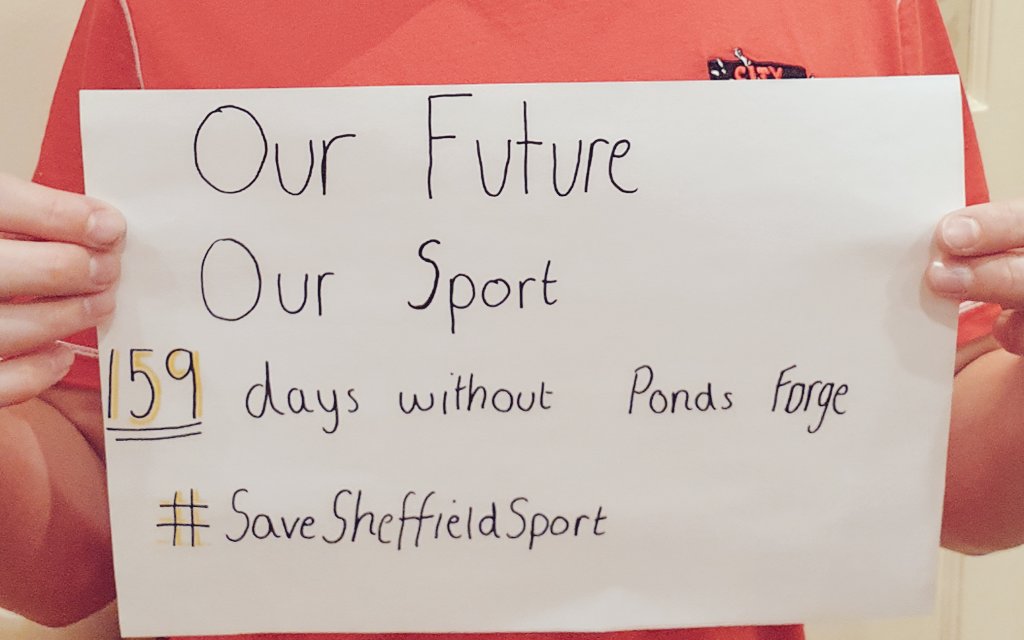 CITY
Our Future
Our Sport
159 days without Ponds Forge
#SaveSheffieldSport